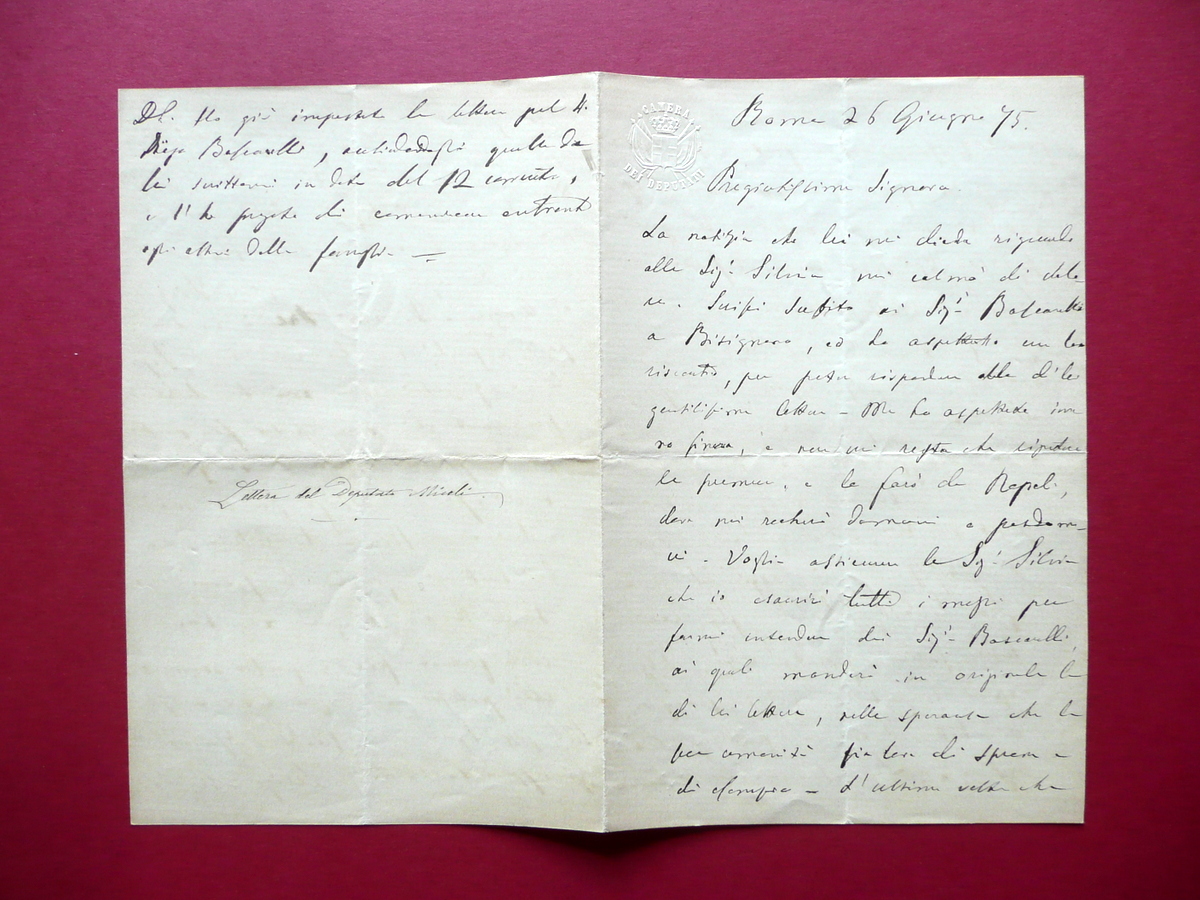 PS. Ho già impostato la lettera pel S.
Diego Boscarelli, quella da
lei scrittami in data del 12 corrente,
e l'ho pregato di comunicare
agli altri della famiglia —
Lettera del Deputato Miceli
CAMERA
DEI DEPUTATI
Roma 26 Giugno 75.
Pregiatissima Signora.
La notizia che lei mi diede riguardo
alla Sig.ª Silvia mi colmò di dolo-
re. Scrissi subito ai Sig.ri Boscarelli
a Bisignano, ed ho aspettato un loro
riscontro, per poter rispondere alla di lei
gentilissima lettera — Ma ho aspettato inva-
no finora, e non mi resta che ripetere
le premure, e lo farò da Napoli,
dove mi recherò domani o posdoma-
ni. Voglia assicurare la Sig.ª Silvia
che io esaurirò tutti i mezzi per
farmi intendere dai Sig.ri Boscarelli,
ai quali manderò in originale la
di lei lettera, nella speranza che la
loro umanità
di — L'ultima volta che